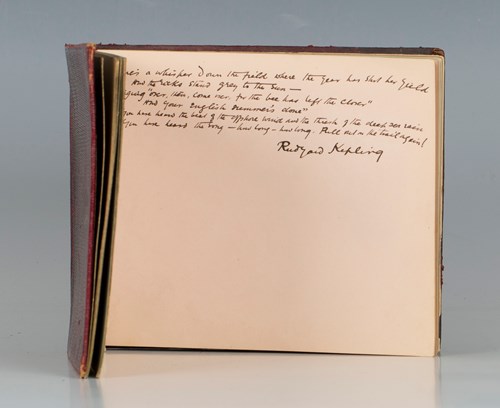 re's a whisper down the field where the year has shot her yield
And the ricks stand grey to the sun —
ging "over, then, come over, for the bee has left the clover"
And your English summer's done"
you have heard the beat of the offshore wind and the thresh of the deep sea rain
you have heard the song — how long — how long. Pull out on the trail again!
Rudyard Kipling